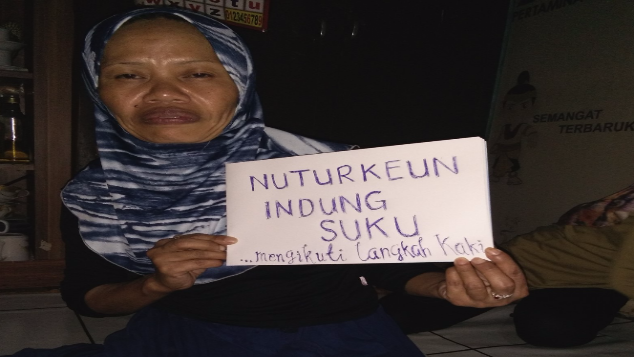 NUTURKEUN
INDUNG
SUKU
...mengikuti langkah kaki
SEMANGAT
TERBARUK